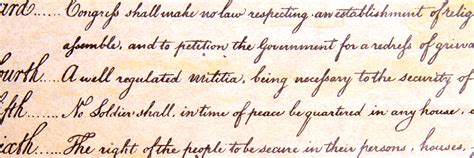 ard...... Congress shall make no law respecting an establishment of relig
assemble, and to petition the Government for a redress of grieva
ourth.... A well regulated Militia, being necessary to the security of
fth..... No Soldier shall, in time of peace be quartered in any house,
ixth..... The right of the people to be secure in their persons, houses,